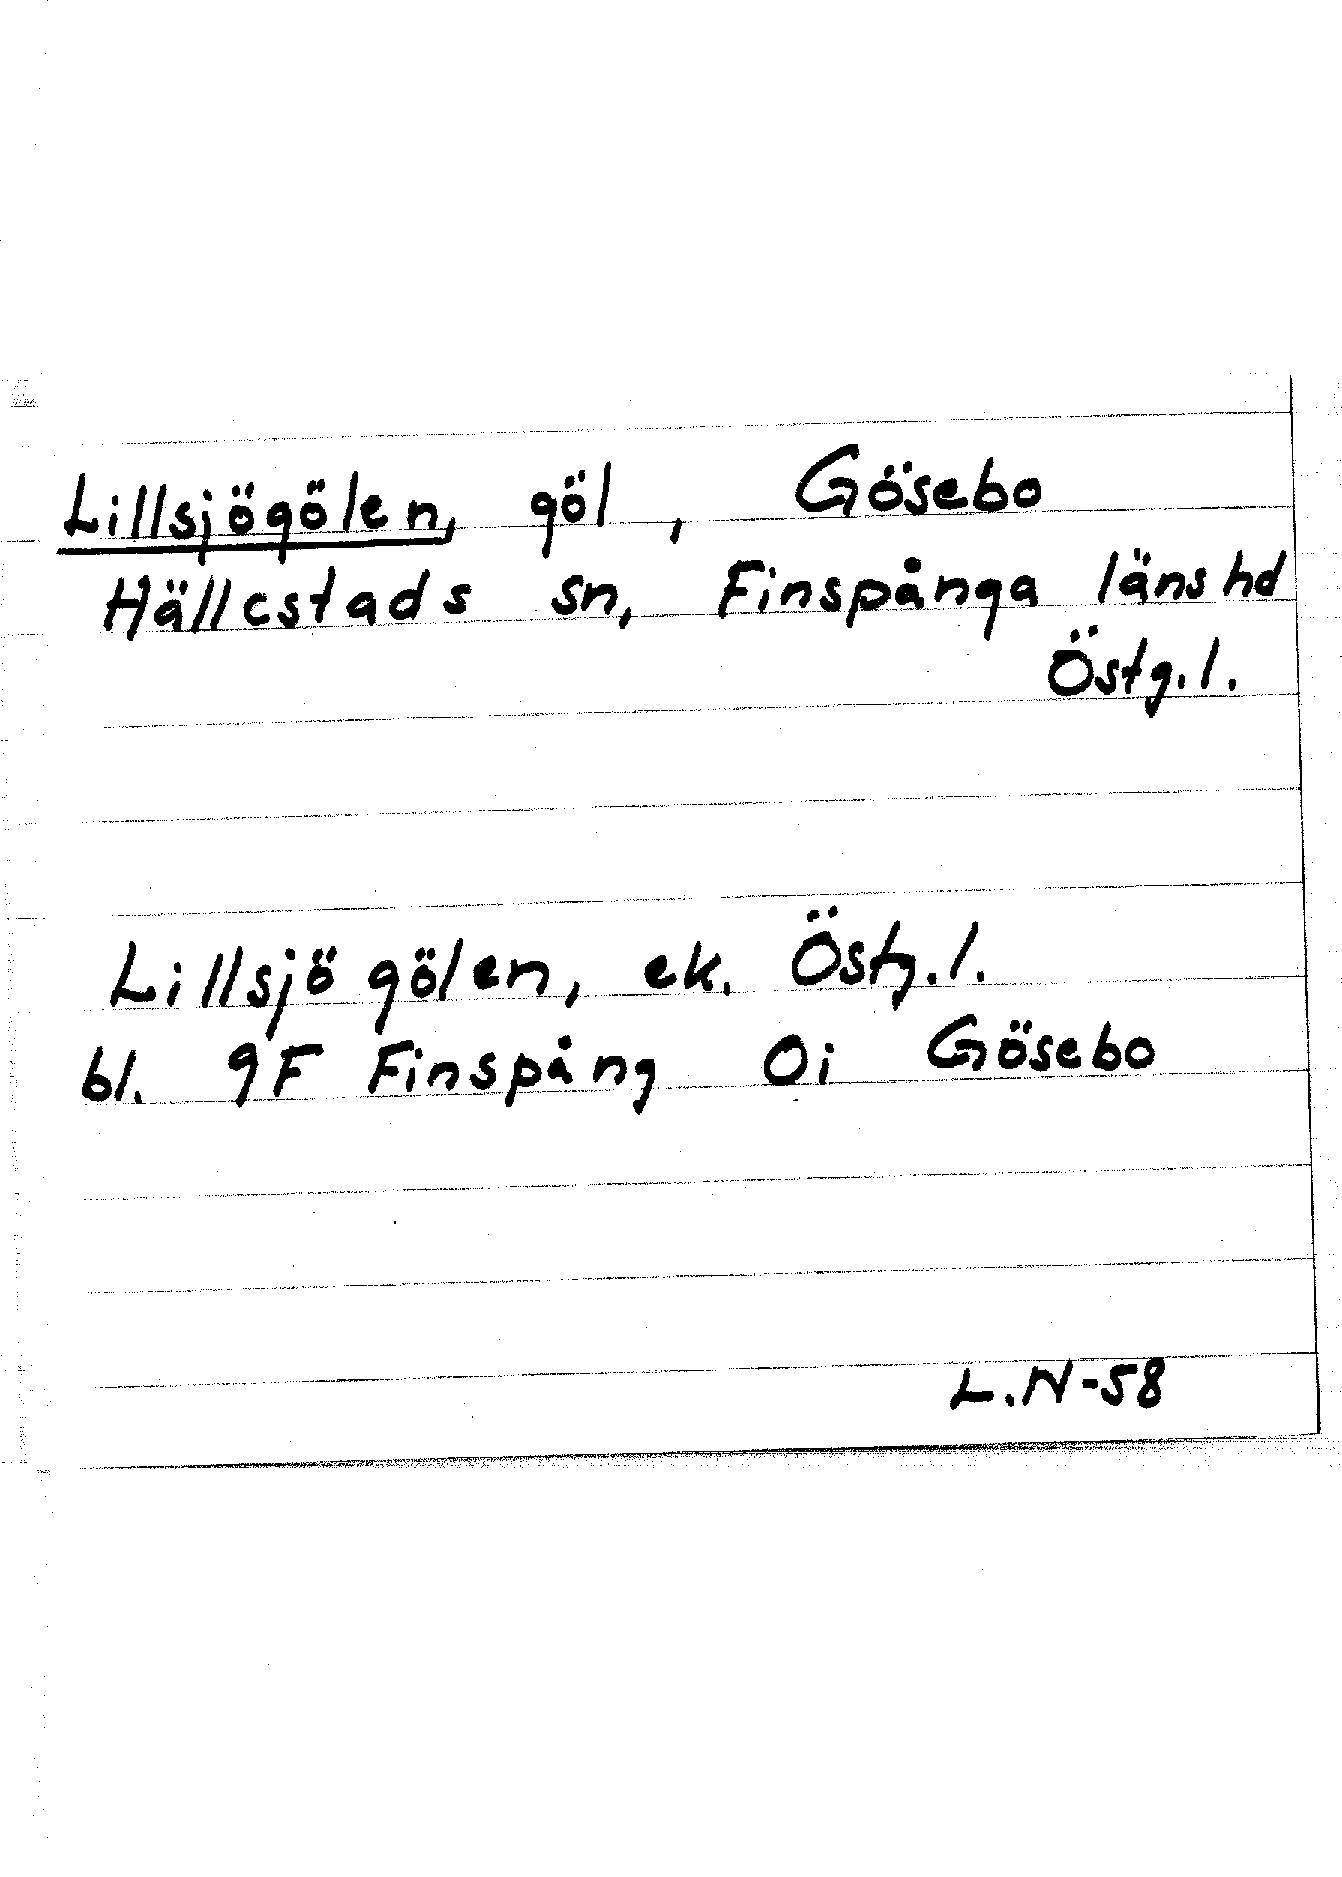 Lillsjögölen, göl, Gösebo
Hällestads sn, Finspånga länshd
Östg.l.
Lillsjögölen, ek. Östg.l.
bl. 9F Finspång Oi Gösebo
L.N-58